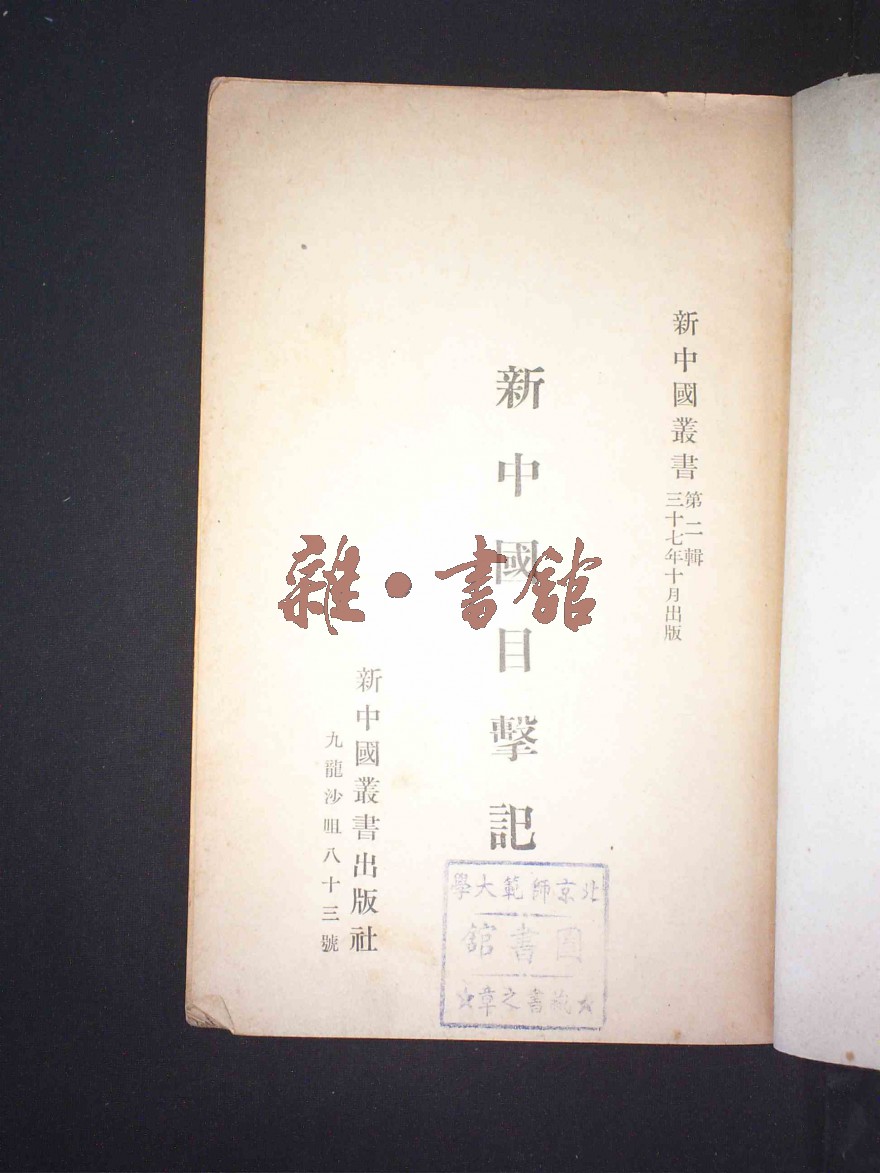 新中國叢書
第二輯
三十七年十月出版
新中國目擊記
新中國叢書出版社
九龍沙咀八十三號
雜·書館
北京師範大學
圖書館
藏書之章